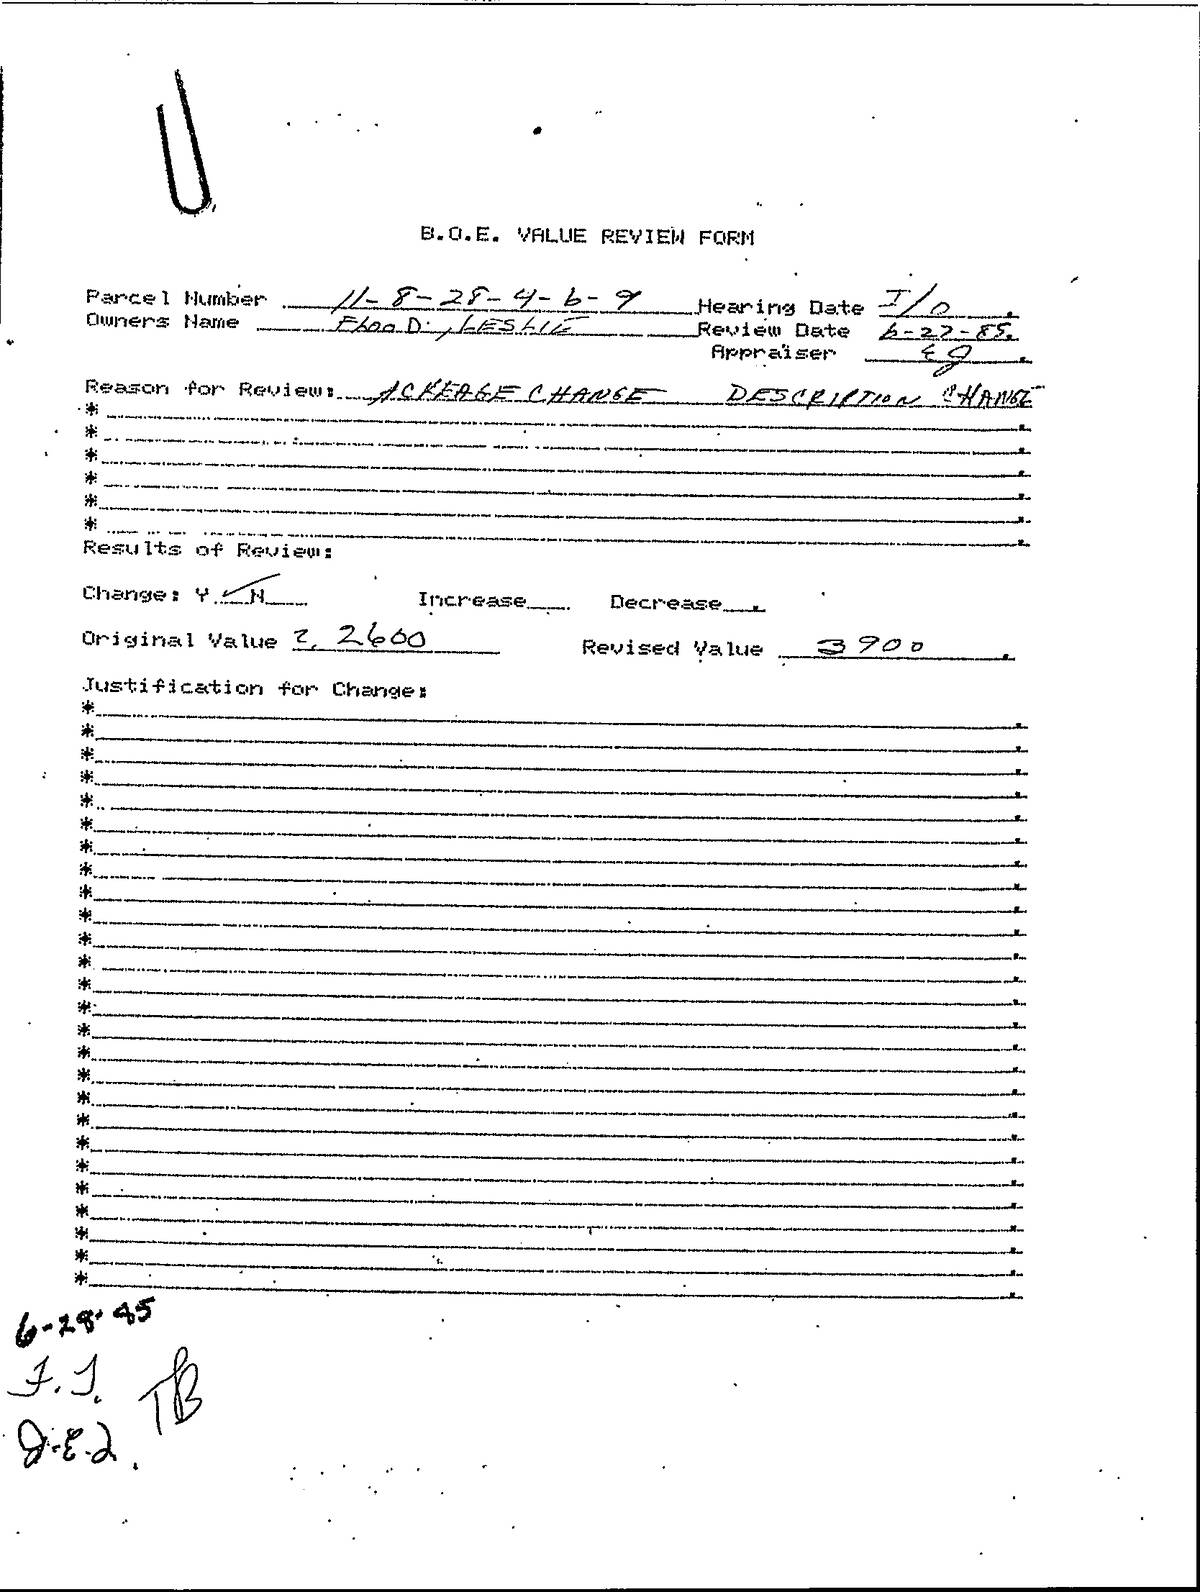 B.O.E. VALUE REVIEW FORM
Parcel Number 11-8-28-4-6-9 Hearing Date I/O
Owners Name FlooD, LESLIE Review Date 6-27-85
Appraiser
Reason for Review: ACREAGE CHANGE DESCRIPTION CHANGE
*
*
*
*
*
*
Results of Review:
Change: Y ✓ N Increase Decrease
Original Value 2600 Revised Value 3900
Justification for Change:
*
*
*
*
*
*
*
*
*
*
*
*
*
*
*
*
*
*
*
*
*
*
*
*
*
*
6-28-85
TB